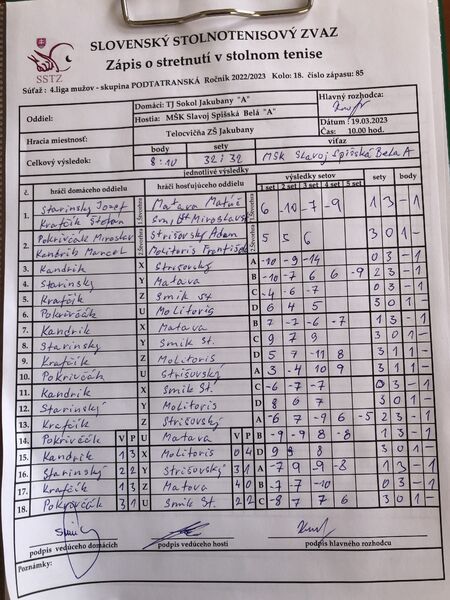 SLOVENSKÝ STOLNOTENISOVÝ ZVAZ
Zápis o stretnutí v stolnom tenise
SSTZ
Súťaž : 4.liga mužov - skupina PODTATRANSKÁ Ročník 2022/2023 Kolo: 18. číslo zápasu: 85
Oddiel: Domáci: TJ Sokol Jakubany "A" Hlavný rozhodca:
Hostia: MŠK Slavoj Spišská Belá "A"
Hracia miestnosť: Telocvičňa ZŠ Jakubany Dátum : 19.03.2023
Čas: 10.00 hod.
Celkový výsledok: body sety víťaz
8:10 32:32 MŠK Slavoj Spišská Belá A
jednotlivé výsledky
č. hráči domáceho oddielu hráči hosťujúceho oddielu výsledky setov sety body
1 set 2 set 3 set 4 set 5 set
1. Starinský Jozef Matava Matúš 6 -10 -7 -9 1 3 - 1
Krafčík Štefan Smik St Miroslav
2. Pokrivčák Miroslav Strišovský Adam 5 5 6 3 0 1 -
Kandrik Marcel Molitoris František
3. Kandrik X Strišovský A -10 -9 -14 0 3 - 1
4. Starinský Y Matava B -10 -7 6 6 -9 2 3 - 1
5. Krafčík Z Smik st C -4 -6 -7 0 3 - 1
6. Pokrivčák U Molitoris D 6 4 5 3 0 1 -
7. Kandrik X Matava B 7 -7 -6 -7 1 3 - 1
8. Starinsky Y Smik St C 9 7 9 3 0 1 -
9. Krafčík Z Molitoris D 5 7 -11 8 3 1 1 -
10. Pokrivčák U Strišovský A 3 -4 10 9 3 1 1 -
11. Kandrik X Smik St. C -6 -7 -7 0 3 - 1
12. Starinský Y Molitoris D 8 6 7 3 0 1 -
13. Krafčík Z Strišovský A -6 7 -9 6 -5 2 3 - 1
14. Pokrivčák V P U Matava V P B -9 -9 8 -8 1 3 - 1
15. Kandrik 1 3 X Molitoris 0 4 D 9 9 8 3 0 1 -
16. Starinský 2 2 Y Strišovský 3 1 A -7 9 -9 -8 1 3 - 1
17. Krafčík 1 3 Z Matava 4 0 B -7 -7 -10 0 3 - 1
18. Pokrivčák 3 1 U Smik St. 2 2 C -8 7 7 6 3 0 1 -
podpis vedúceho domácich podpis vedúceho hostí podpis hlavného rozhodcu
Poznámky: